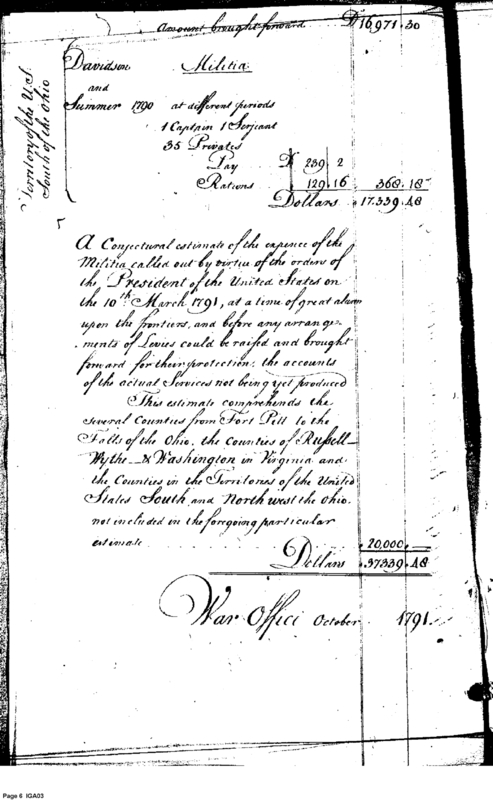 Amount brought forward D 16,971.30
Territory of the U.S.
South of the Ohio
Davidson Militia
and
Summer 1790 at different periods
1 Captain 1 Serjeant
35 Privates
Pay D 239.2
Rations 129.16 368.18
Dollars 17.339.48
A Conjectural estimate of the expence of the
Militia called out by virtue of the orders of
the President of the United States on
the 10th March 1791, at a time of great alarm
upon the frontiers, and before any arrange-
-ments of Levies could be raised and brought
forward for their protection; the accounts
of the actual Services not being yet produced
This estimate comprehends the
several Counties from Fort Pitt to the
Falls of the Ohio, the Counties of Russell
Wythe & Washington in Virginia and
the Counties in the Territories of the United
States South and North west the Ohio
not included in the foregoing particular
estimate 20,000.—
Dollars 37339.48
War Office October 1791.
Page 6 IGA03